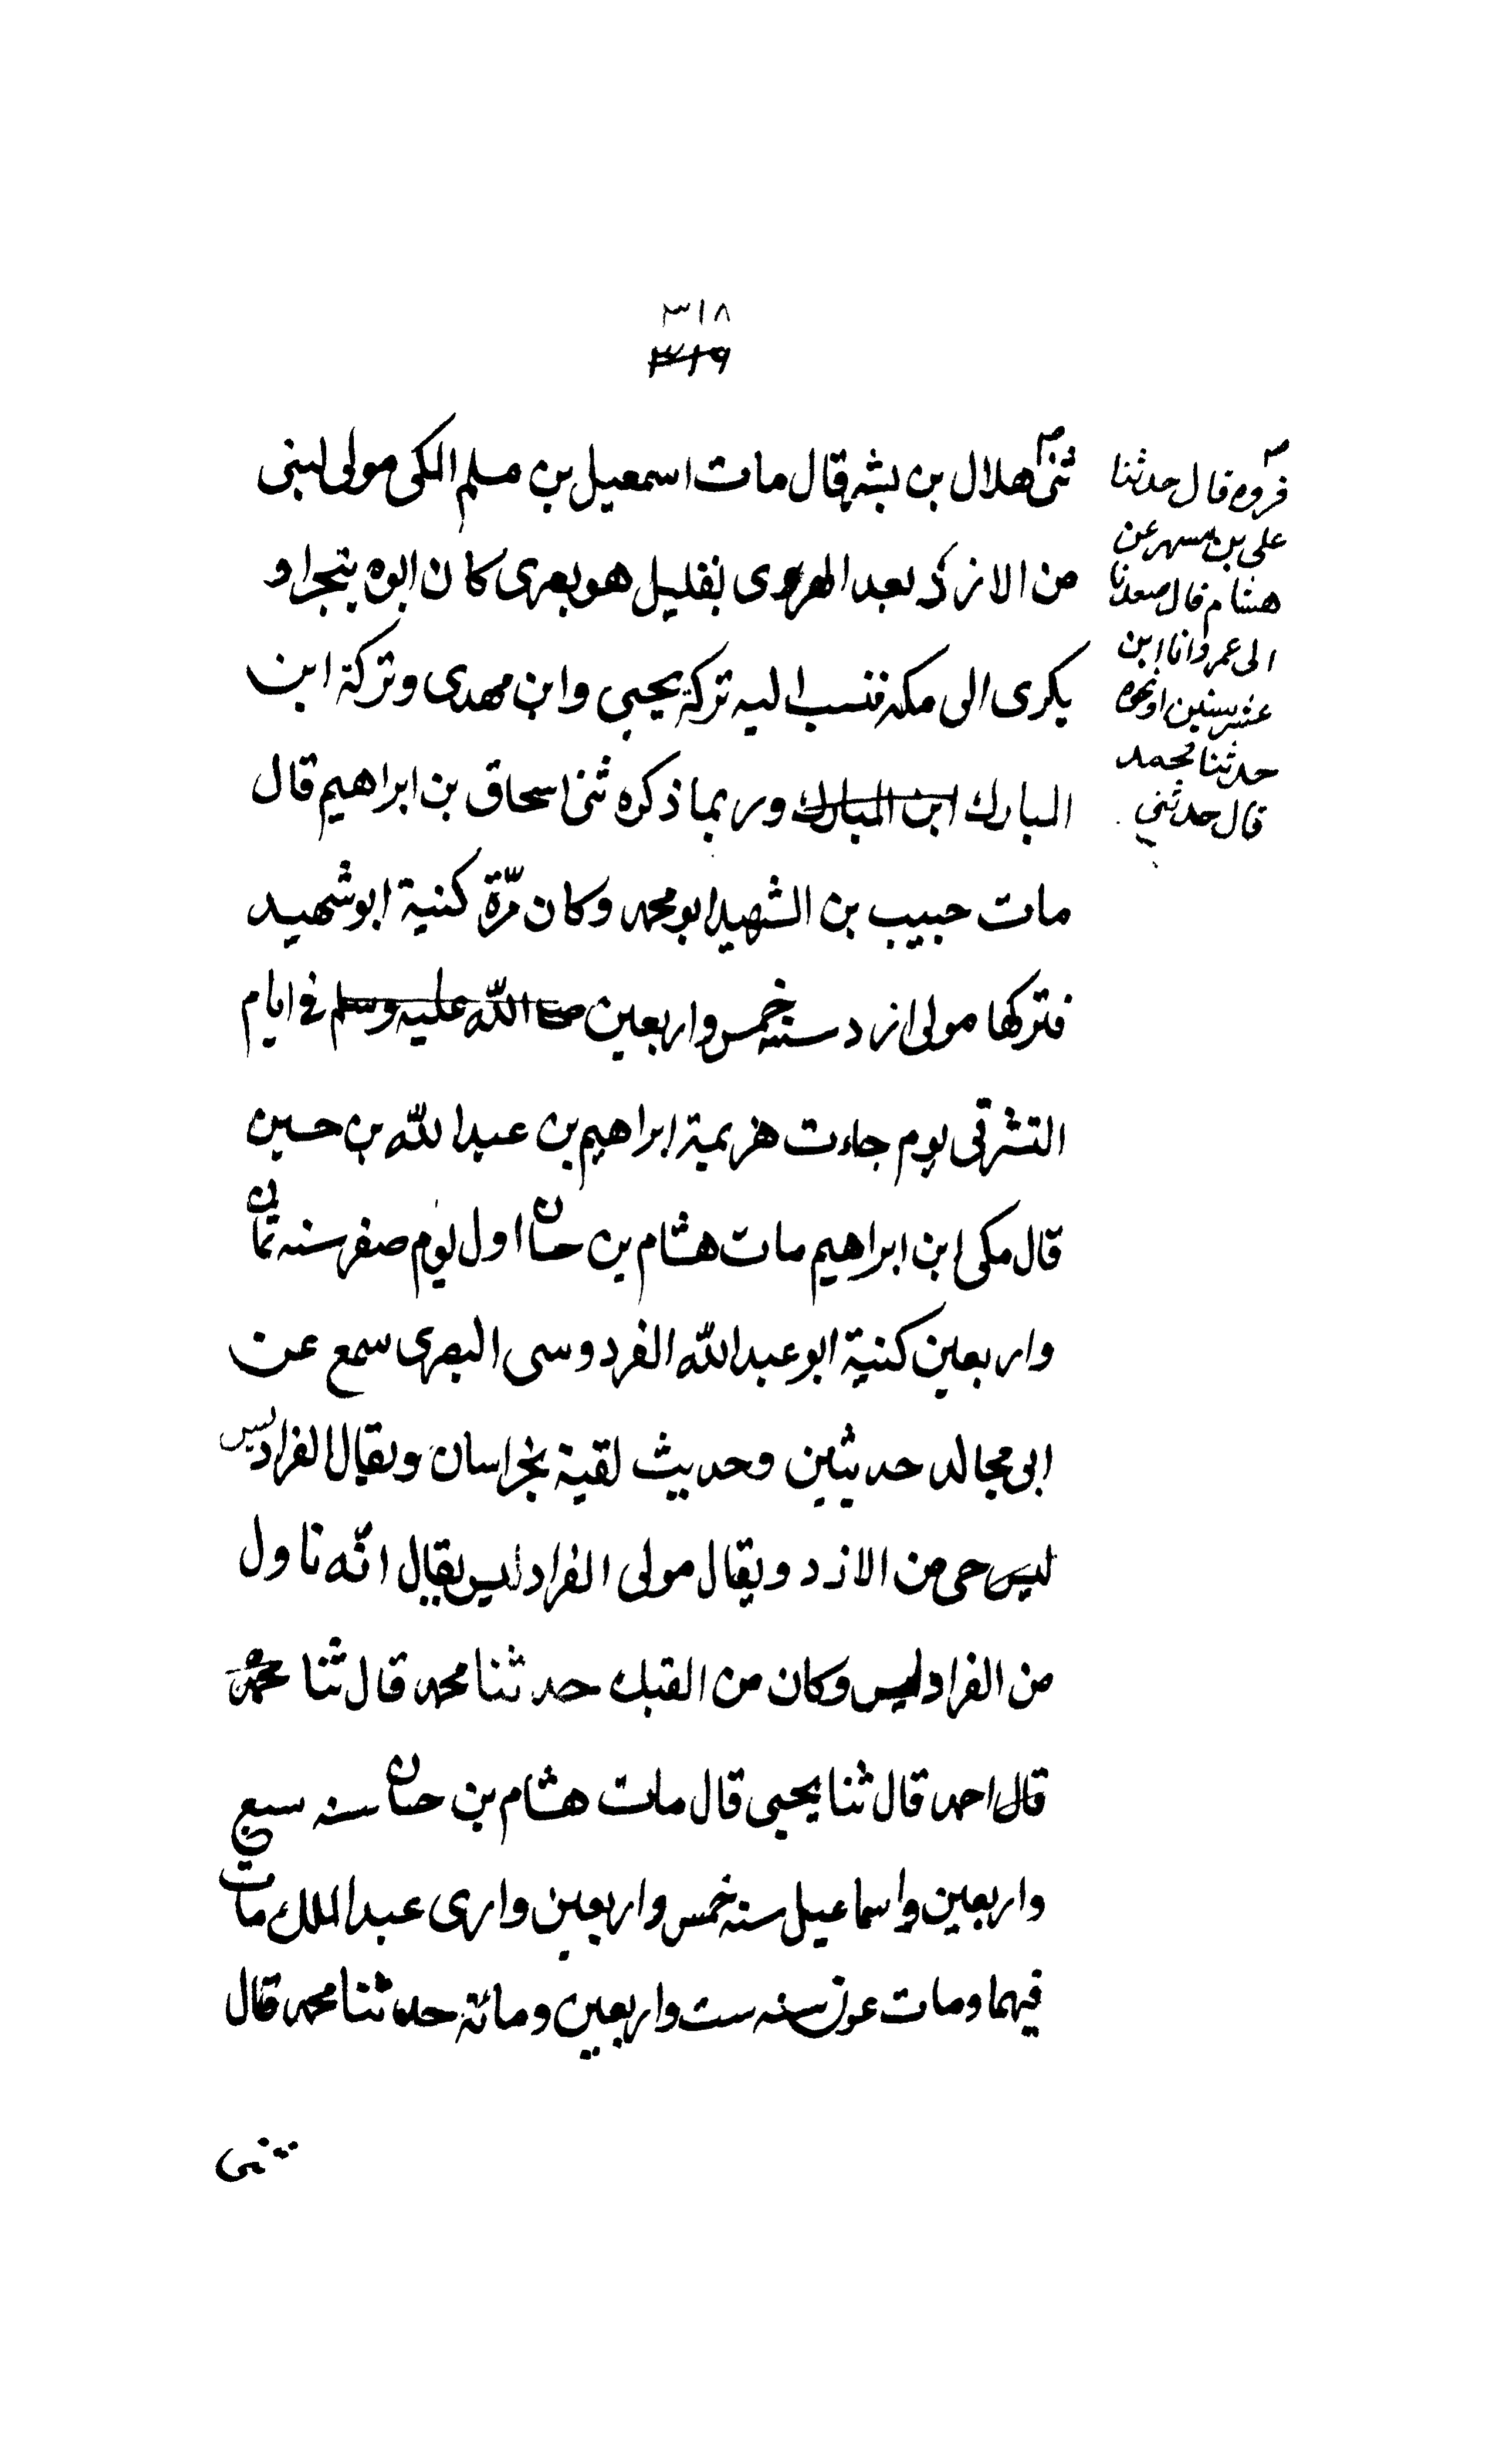 ٣١٨
٣١٩
ثنى هلال بن بشر قال مات اسمعيل بن مسلم المكى مولى لبنى
من الازد بعد الهروى بقليل هو بصرى كان ابوه يتجر او
يكرى الى مكة فنسب اليه تركة يحيى وابن مهدى وتركة ابن
المبارك ابن المبارك وربما ذكره ثنى اسحاق بن ابراهيم قال
مات حبيب بن الشهيد ابو محمد وكان مرّة كنية ابو شهيد
فتركها مولى ازد سنة خمس واربعين صلى الله عليه وسلم فى ايام
التشرقى يوم جاءت هزيمة ابراهيم بن عبد الله بن حسين
قال مكى ابن ابراهيم مات هشام بن حسان اول يوم صفر سنه ثمان
واربعين كنية ابو عبد الله الفردوسى البصرى سمع عن
ابى مجالد حديثين وحديث لقية بخراسان ويقال الفراديس
ليس حى من الازد ويقال مولى الفراديس يقال انّه ناول
من الفراديس وكان من القبك حدثنا محمد قال ثنا محمد
قال احمد قال ثنا يحيى قال مات هشام بن حسان سنه سبع
واربعين واسماعيل سنه خمس واربعين وارى عبد الملك مات
فيهما ومات عون سنه ست واربعين ومائة حدثنا محمد قال
ثنى
فروه قال حدثنا
على بن مسهر عن
هشام قال صعدنا
الى عمر وانا ابن
عشر سنين او نحوه
حدثنا محمد
قال حدثني